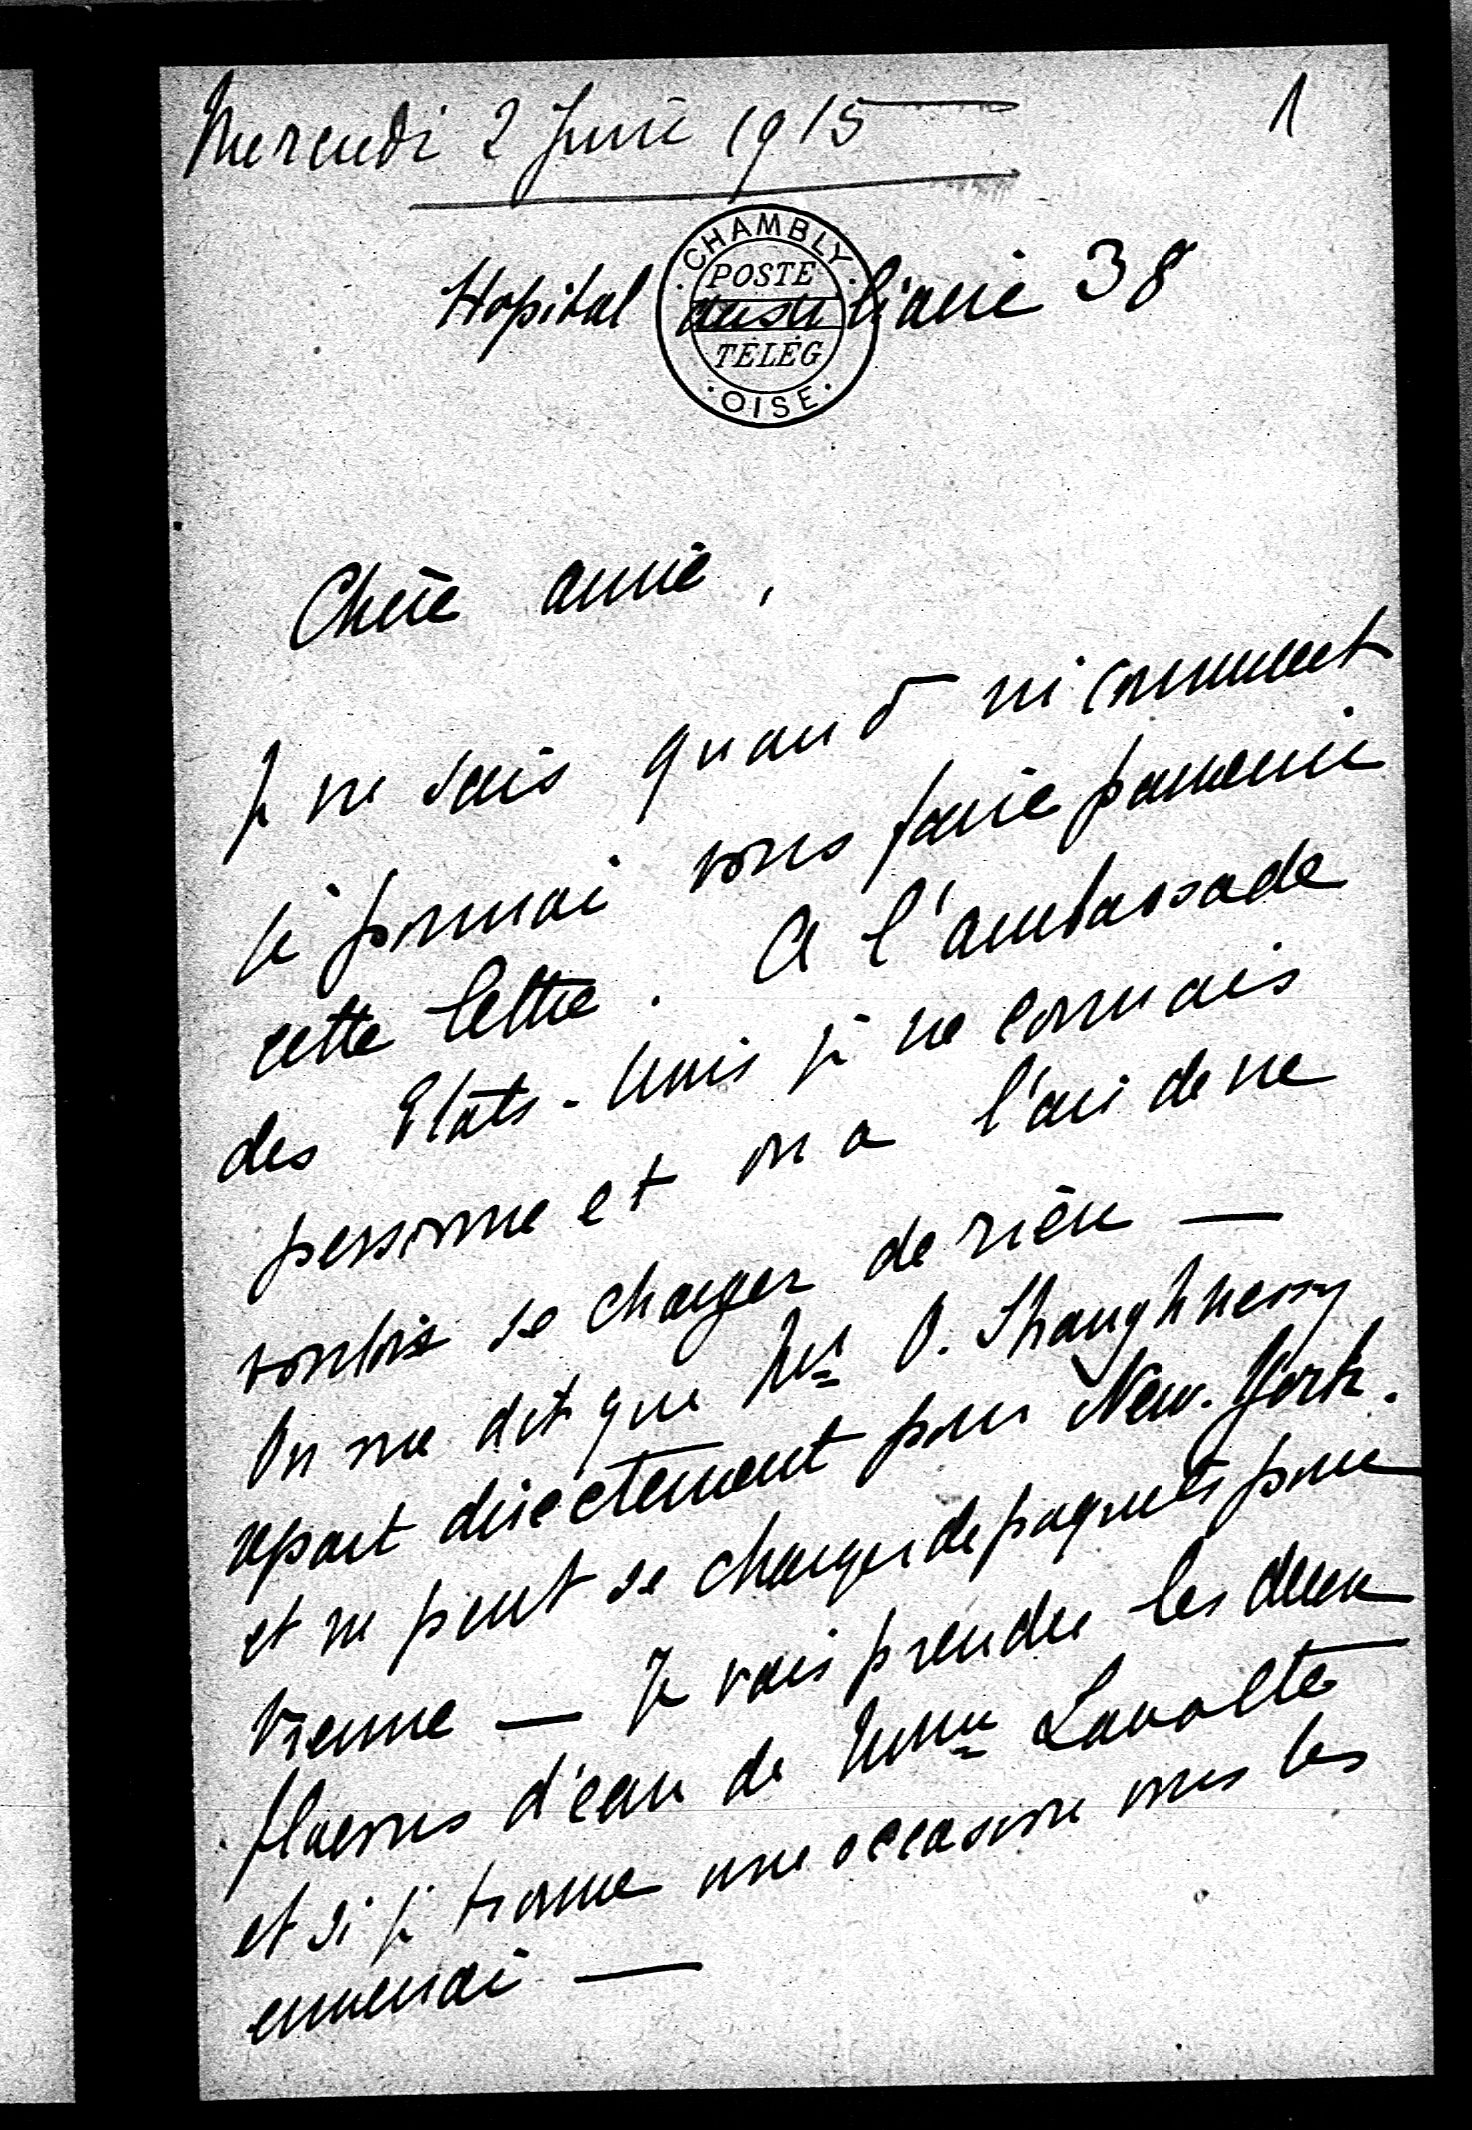 Mercredi 2 Juin 1915
1
CHAMBLY
POSTE
TÉLÉG
OISE
Hopital auxiliaire 38
Chère amie,
Je ne sais quand ni comment
je pourrai vous faire parvenir
cette lettre. A l'ambassade
des Etats-Unis je ne connais
personne et on a l'air de ne
vouloir se charger de rien —
On me dit que Mrs O. Shaughnessy
repart directement pour New-York.
et ne peut se charger de paquets pour
Vienne — Je vais prendre les deux
flacons d'eau de Mme Lavolte
et si je trouve une occasion vous les
enverrai —